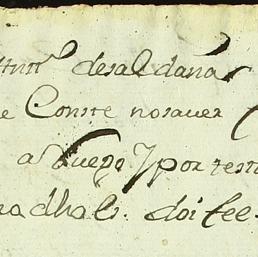 de saldaña
e Conste no saver
a dueño y por testi
dha ls. doi fee